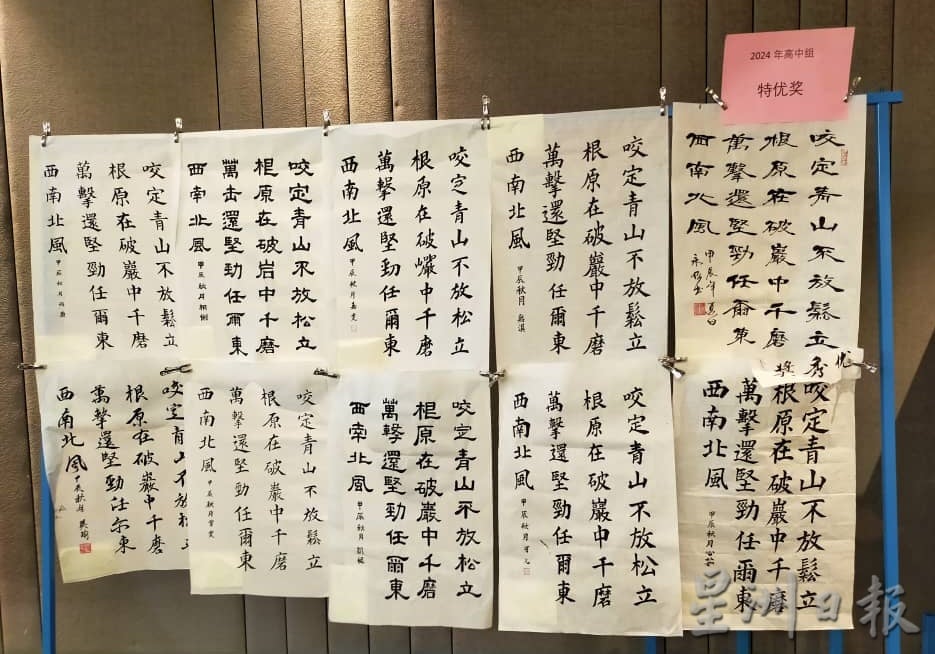 2024 年高中组
特优奖
咬定青山不放鬆立
根原在破巖中千磨
萬擊還堅勁任爾東
西南北風
咬定青山不放鬆立
根原在破巖中千磨
萬擊還堅勁任爾東
西南北風 甲辰秋月
咬定青山不放松立
根原在破巖中千磨
萬擊還堅勁任爾東
西南北風 甲辰秋月
咬定青山不放松立
根原在破岩中千磨
萬击還堅劲任爾東
西南北風 甲辰秋月
咬定青山不放鬆立
根原在破巖中千磨
萬擊還堅勁任爾東
西南北風 甲辰秋月
优秀奖
咬定青山不放鬆立
根原在破巖中千磨
萬擊還堅勁任爾東
西南北風 甲辰秋月
咬定青山不放松立
根原在破巖中千磨
萬擊還堅勁任爾東
西南北風 甲辰秋月
咬定青山不放松立
根原在破巖中千磨
萬擊還堅勁任爾東
西南北風 甲辰秋月
咬定青山不放鬆立
根原在破巖中千磨
萬擊還堅勁任爾東
西南北風 甲辰秋月
咬定青山不放松立
根原在破巖中千磨
萬擊還堅勁任尔東
西南北風 甲辰秋月
星洲日報